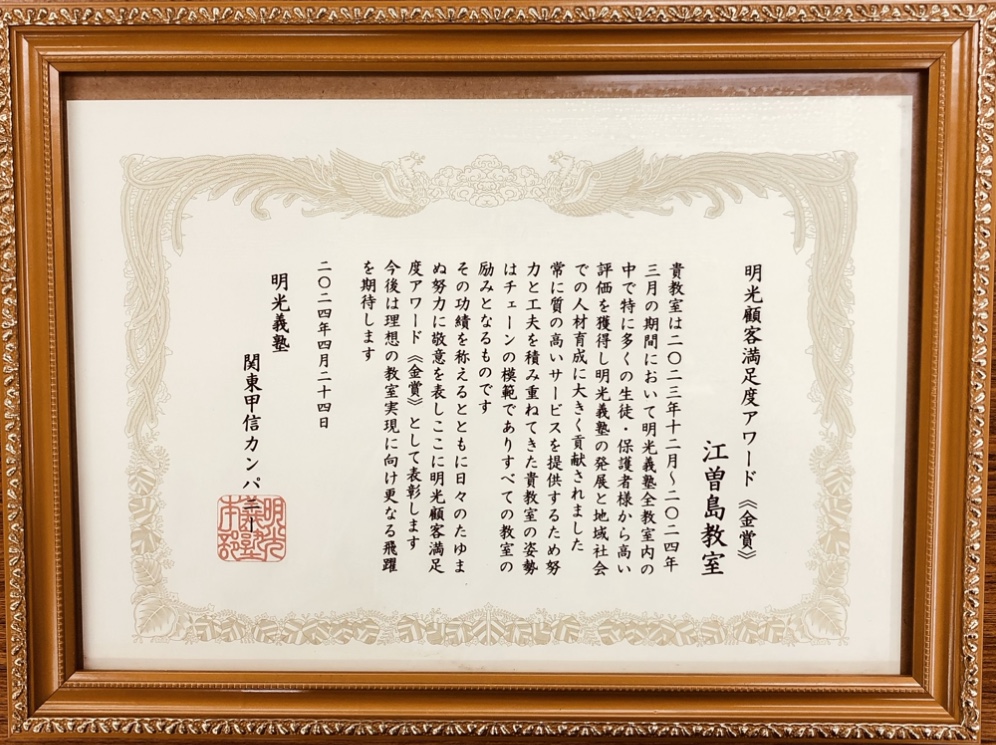 明光顧客満足度アワード《金賞》
江曽島教室
貴教室は二〇二三年十二月～二〇二四年
三月の期間において明光義塾全教室内の
中で特に多くの生徒・保護者様から高い
評価を獲得し明光義塾の発展と地域社会
での人材育成に大きく貢献されました
常に質の高いサービスを提供するため努
力と工夫を積み重ねてきた貴教室の姿勢
はチェーンの模範でありすべての教室の
励みとなるものです
その功績を称えるとともに日々のたゆま
ぬ努力に敬意を表しここに明光顧客満足
度アワード《金賞》として表彰します
今後は理想の教室実現に向け更なる飛躍
を期待します
二〇二四年四月二十四日
明光義塾
関東甲信カンパニー
明光
義塾
本部